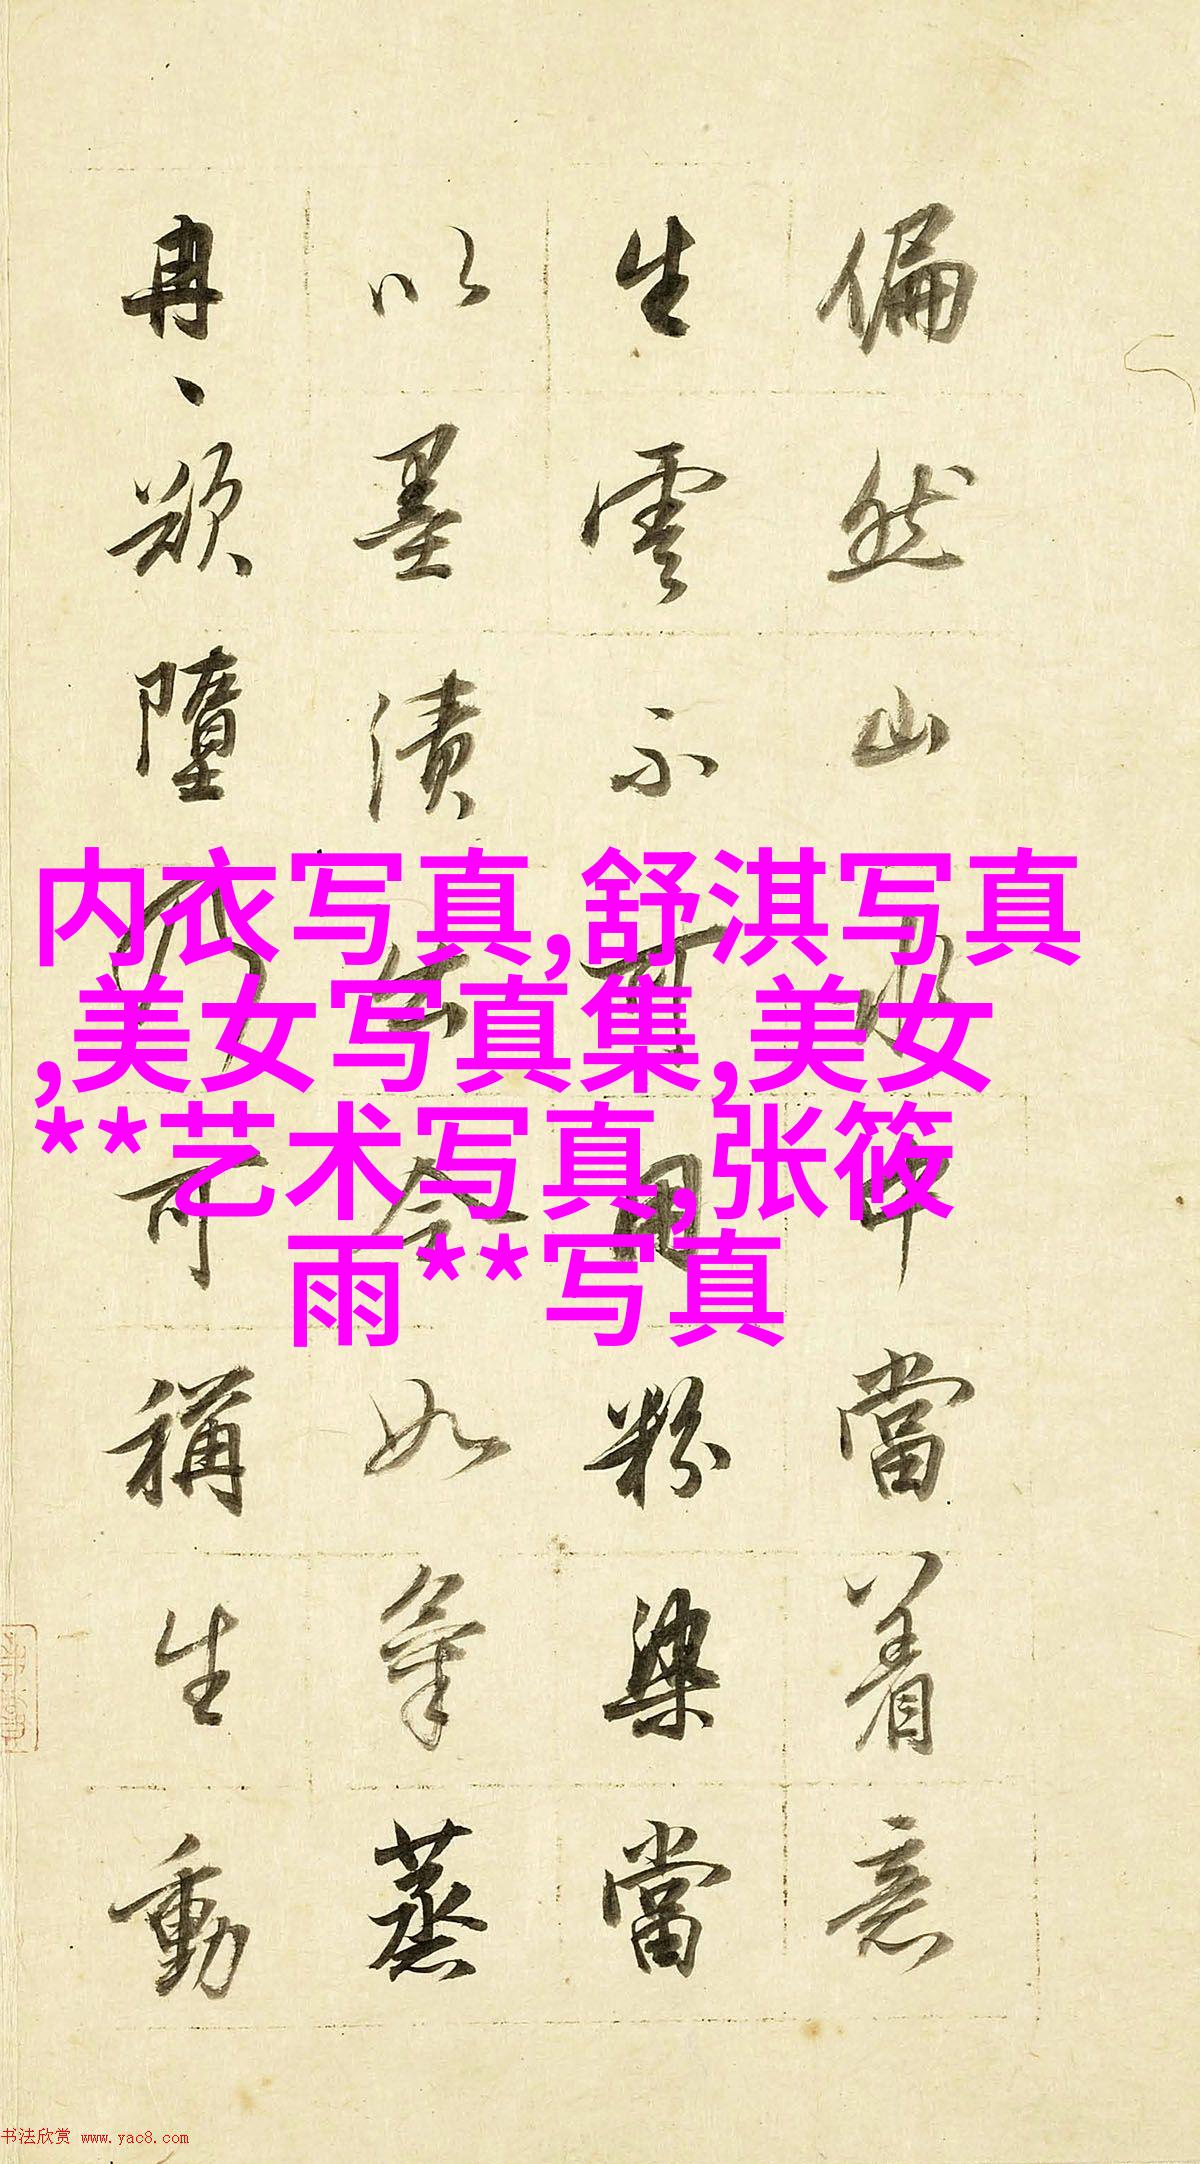 偏然山水中當着意
生雲不可用粉染當
以墨漬出令如氣蒸
冉〻欲墮乃可稱生動
内衣写真,舒淇写真
,美女写真集,美女
**艺术写真,张筱
雨**写真
书法欣赏 www.yac8.com